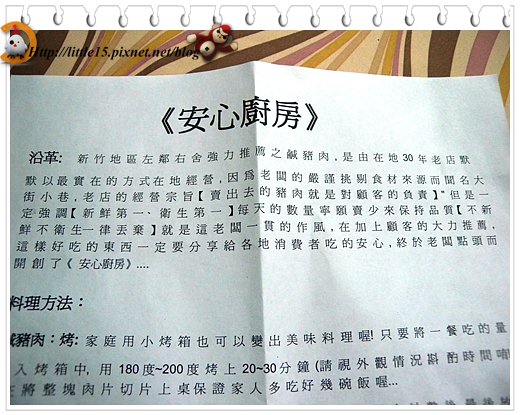 Http://little15.pixnet.net/blog
《安心廚房》
沿革: 新竹地區左鄰右舍強力推薦之鹹豬肉,是由在地30年老店默
默以最實在的方式在地經營,因為老闆的嚴謹挑剔食材來源而聞名大
街小巷,老店的經營宗旨【賣出去的豬肉就是對顧客的負責】"但是一
定強調【新鮮第一、衛生第一】每天的數量寧願賣少來保持品質【不新
鮮不衛生一律丟棄】就是這老闆一貫的作風,在加上顧客的大力推薦,
這樣好吃的東西一定要分享給各地消費者吃的安心,終於老闆點頭而
開創了《 安心廚房》....
料理方法:
鹹豬肉: 烤: 家庭用小烤箱也可以變出美味料理喔! 只要將一餐吃的量
入烤箱中, 用180度~200度烤上20~30分鐘(請視外觀情況斟酌時間唷
將整塊肉片切片上桌保證家人多吃好幾碗飯喔...